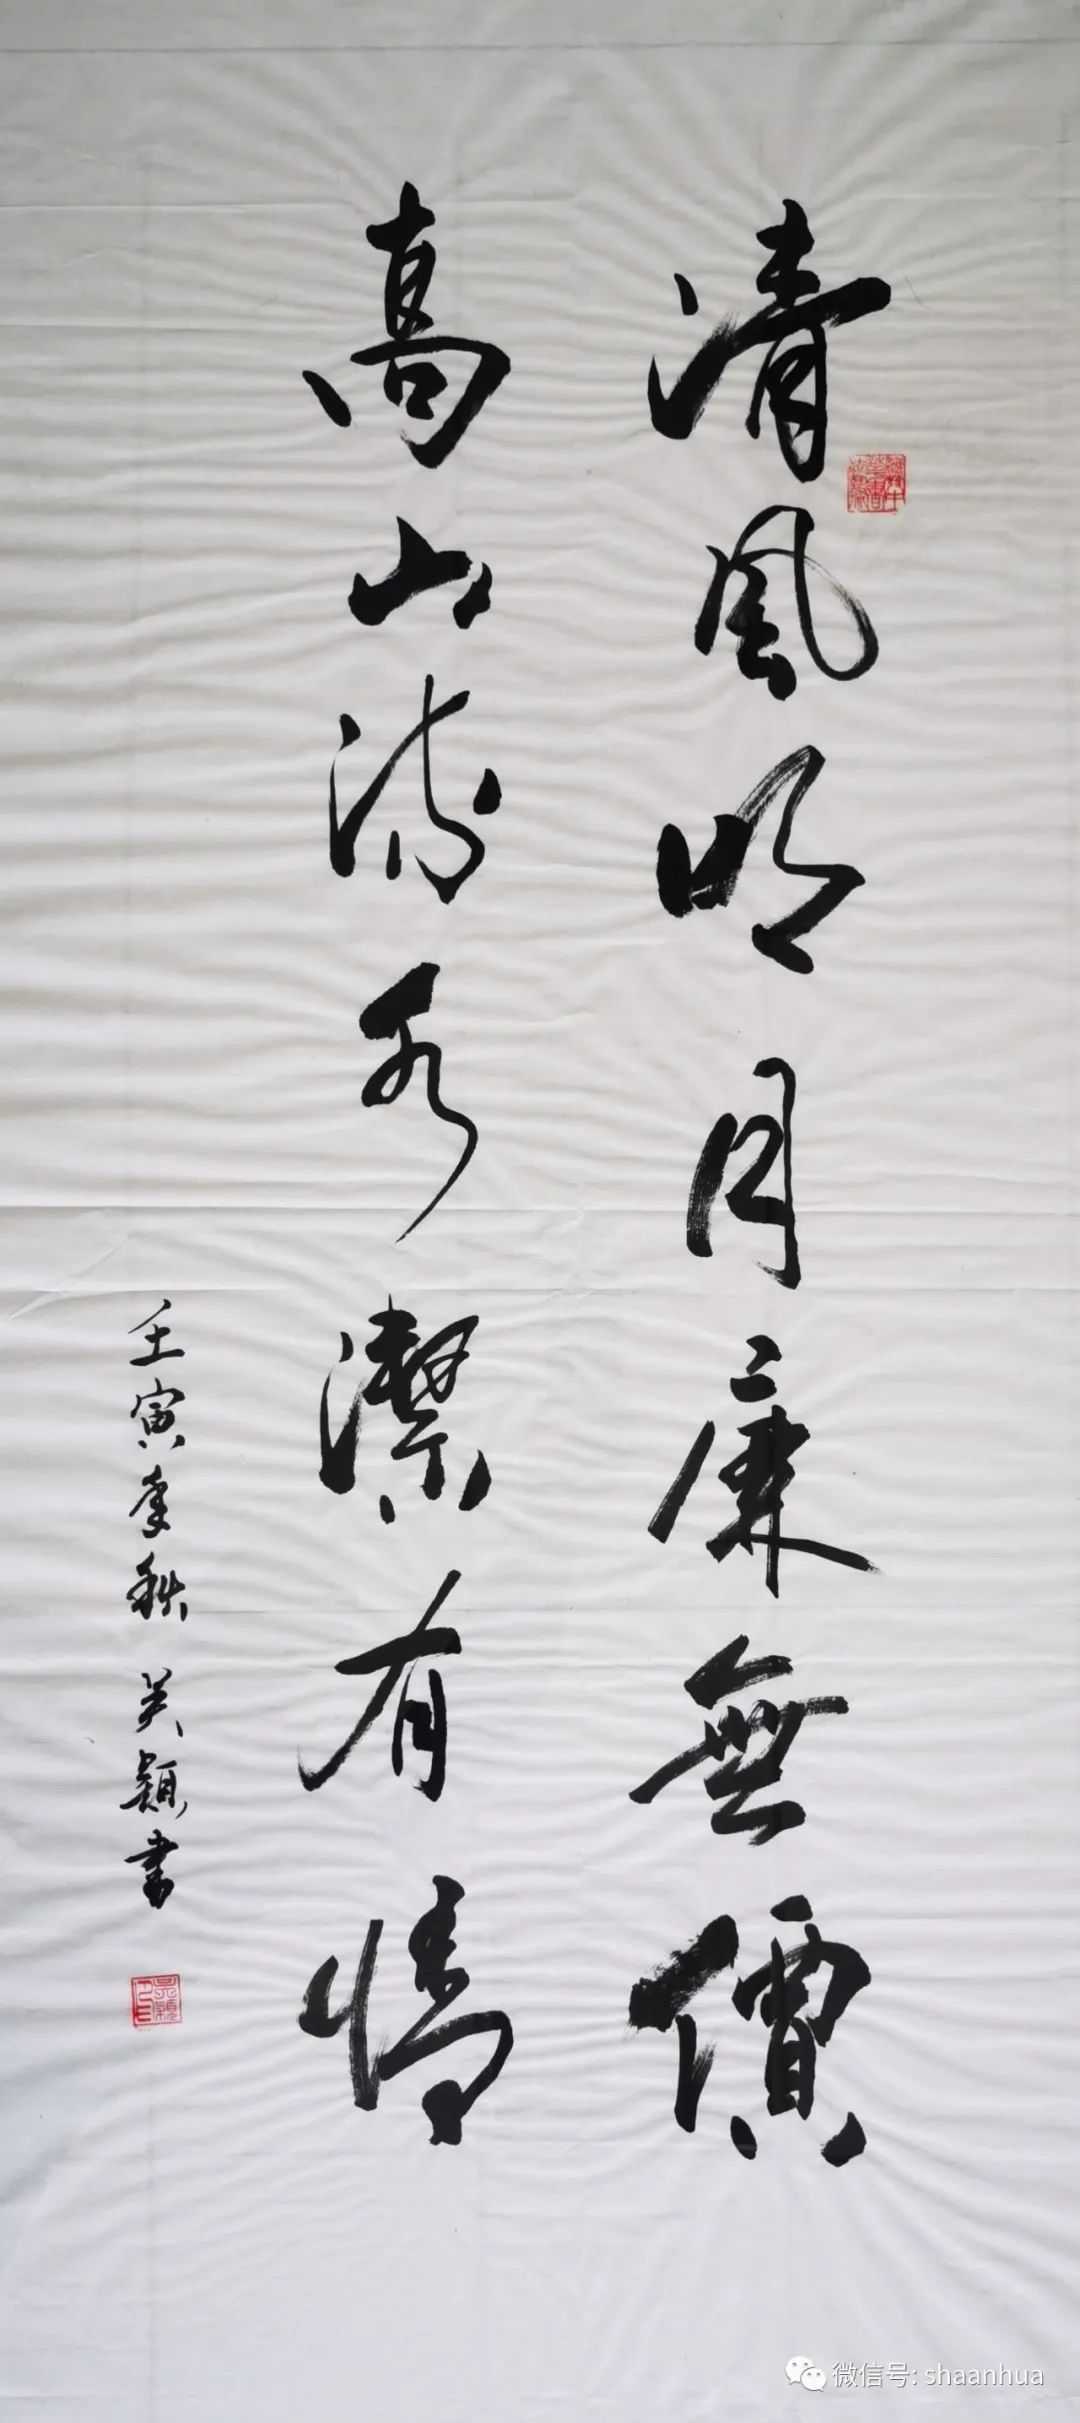 清風明月廉無價
高山流水潔有情
壬寅季秋 吴穎書
吴穎
微信号: shaanhua